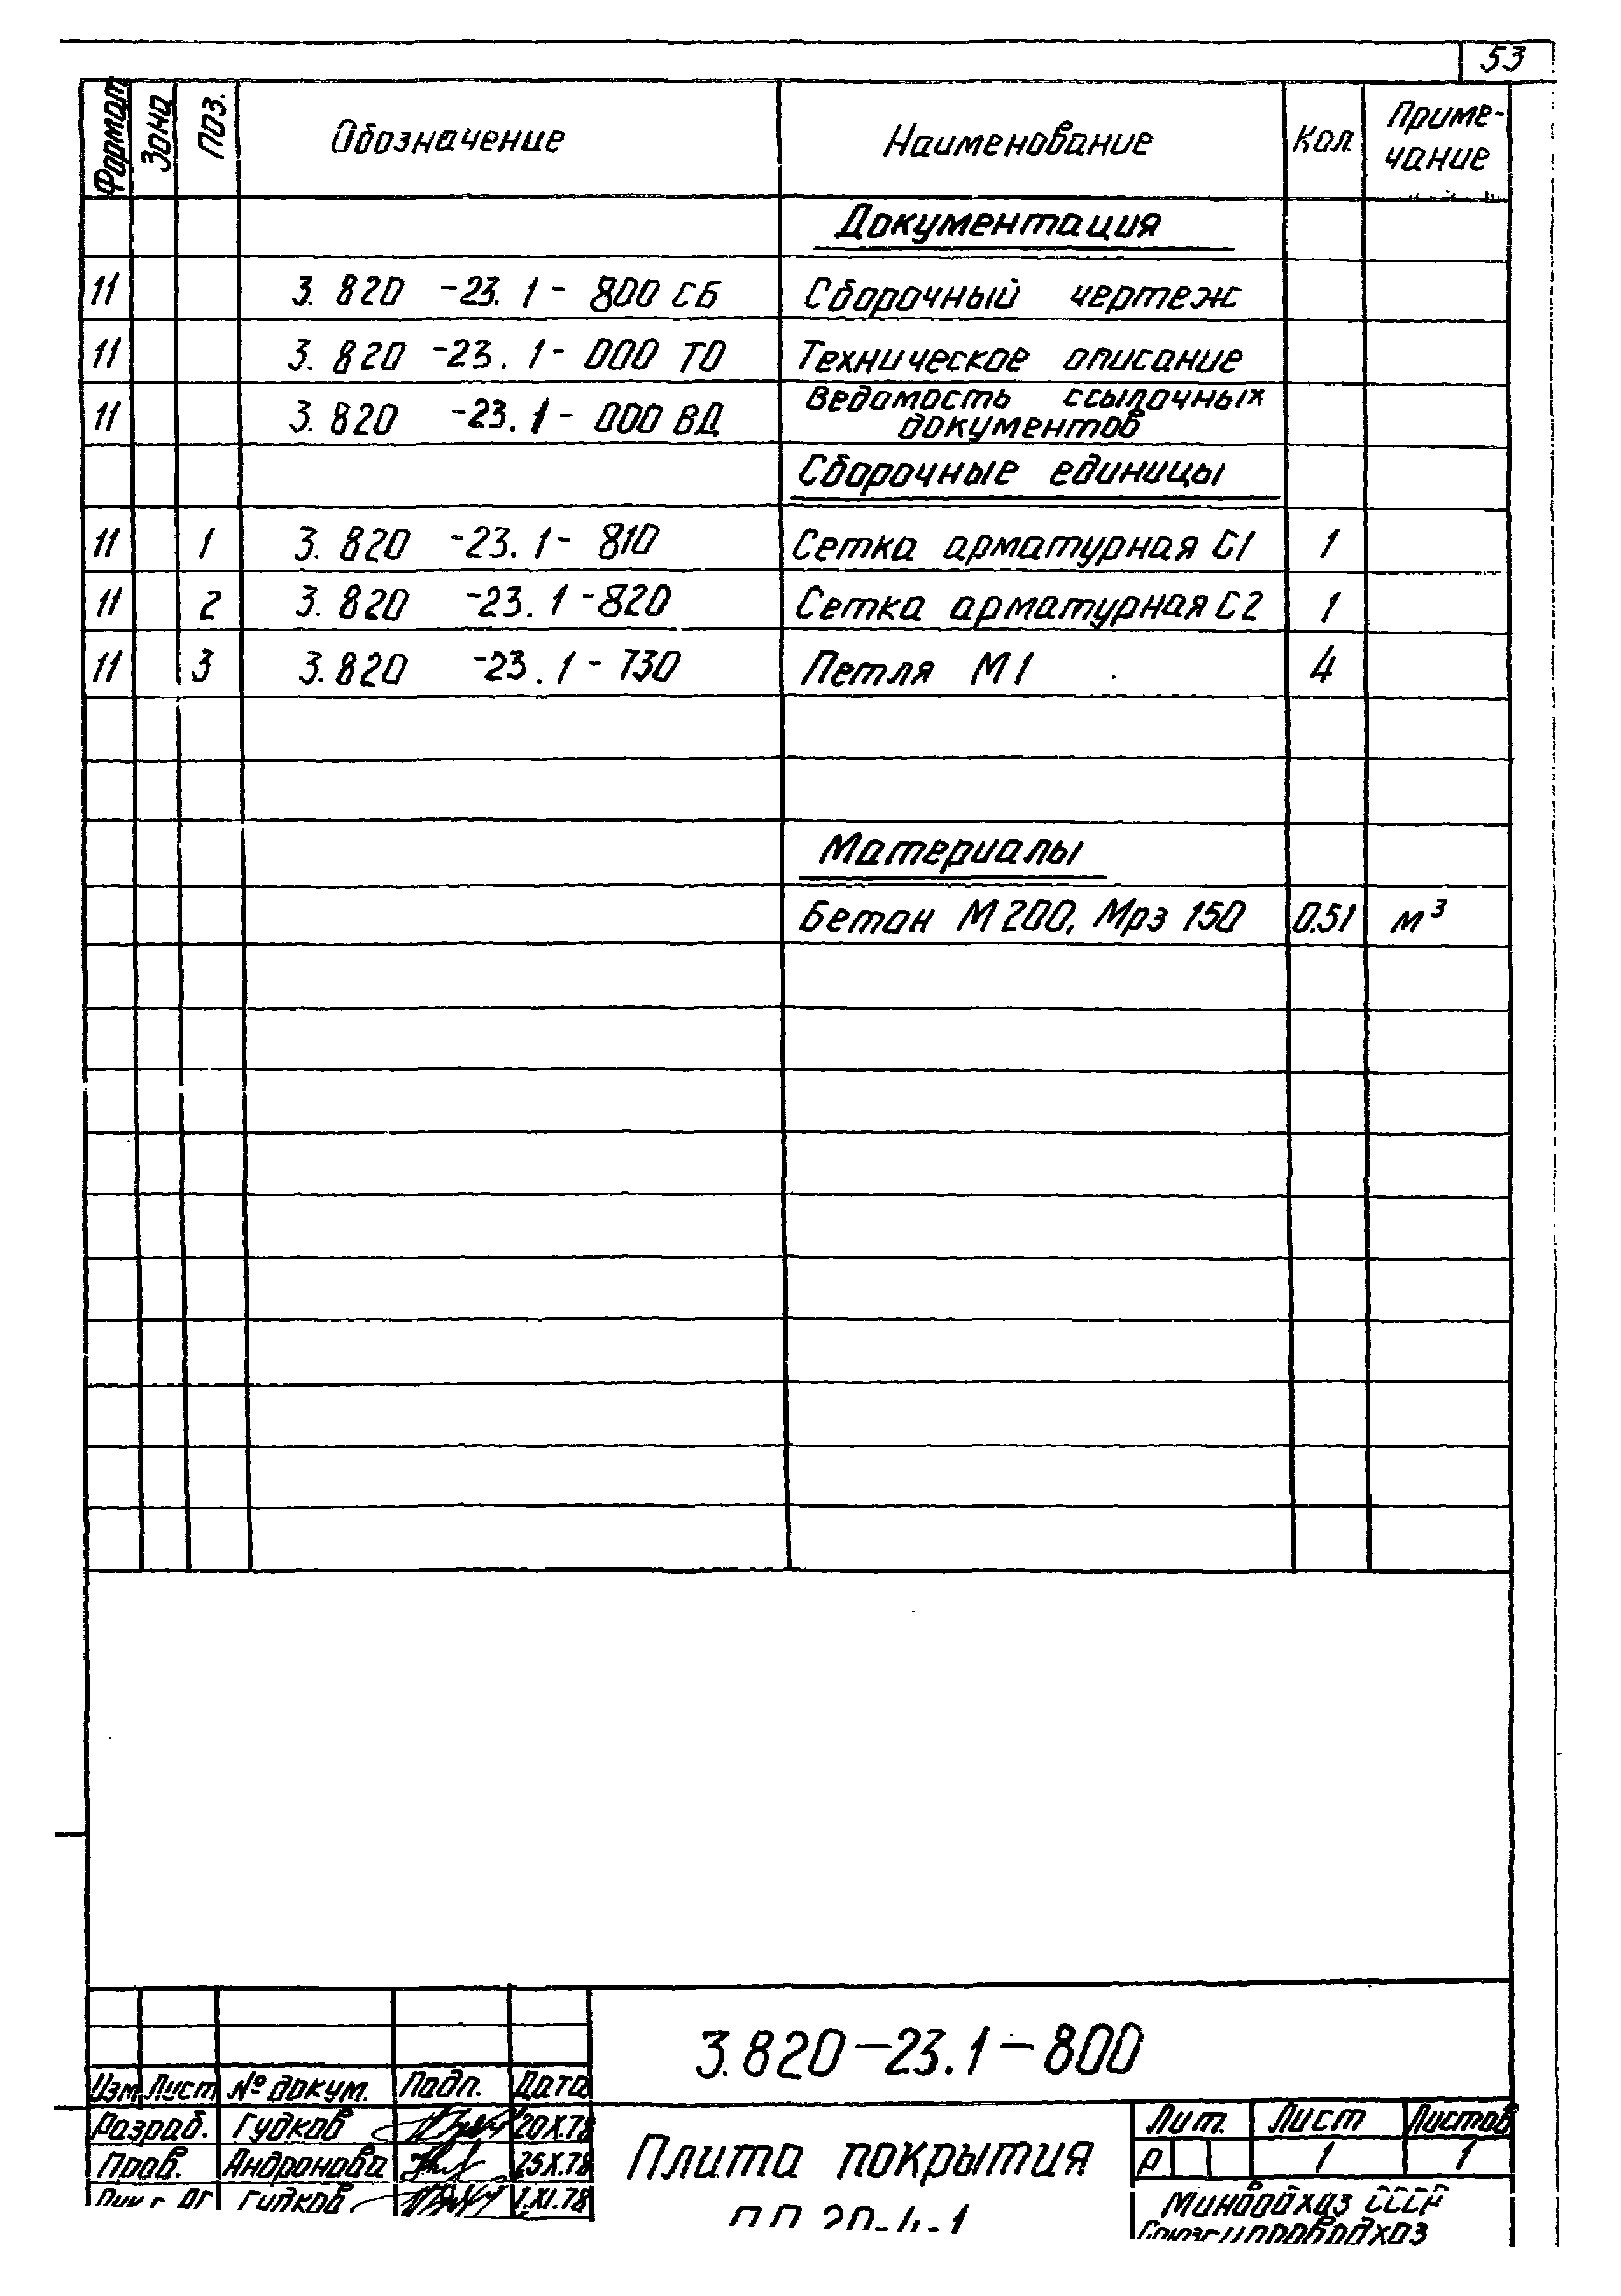 53
Формат Зона Поз. Обозначение Наименование Кол. Приме-
чание
Документация
11 3.820 -23.1- 800 СБ Сборочный чертеж
11 3.820 -23.1- 000 ТО Техническое описание
11 3.820 -23.1- 000 ВД Ведомость ссылочных
документов
Сборочные единицы
11 1 3.820 -23.1- 810 Сетка арматурная С1 1
11 2 3.820 -23.1-820 Сетка арматурная С2 1
11 3 3.820 -23.1- 730 Петля М1 4
Материалы
Бетон М200, Мрз 150 0.51 м³
3.820-23.1-800
Изм Лист № докум. Подп. Дата
Разраб. Гудков 20.X.78
Пров. Андронова 25.X.78
Гудков 1.XI.78
Плита покрытия
ПП 20-4-1
Лит. Лист Листов
Р 1 1
Минводхоз СССР
Союзгипроводхоз